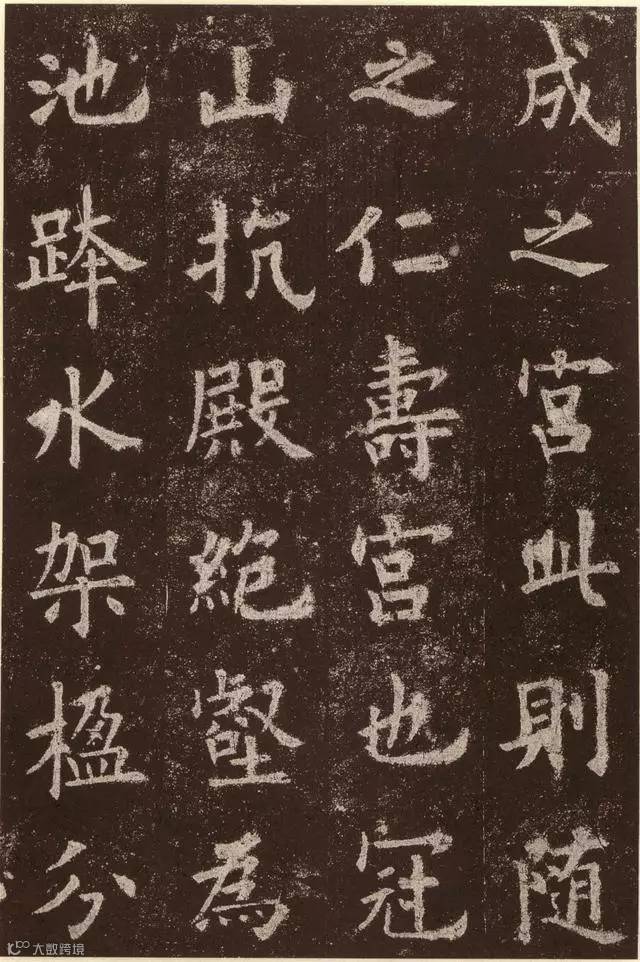 成之宮此則随
之仁壽宮也冠
山抗殿絶壑為
池跨水架楹分
大数跨境